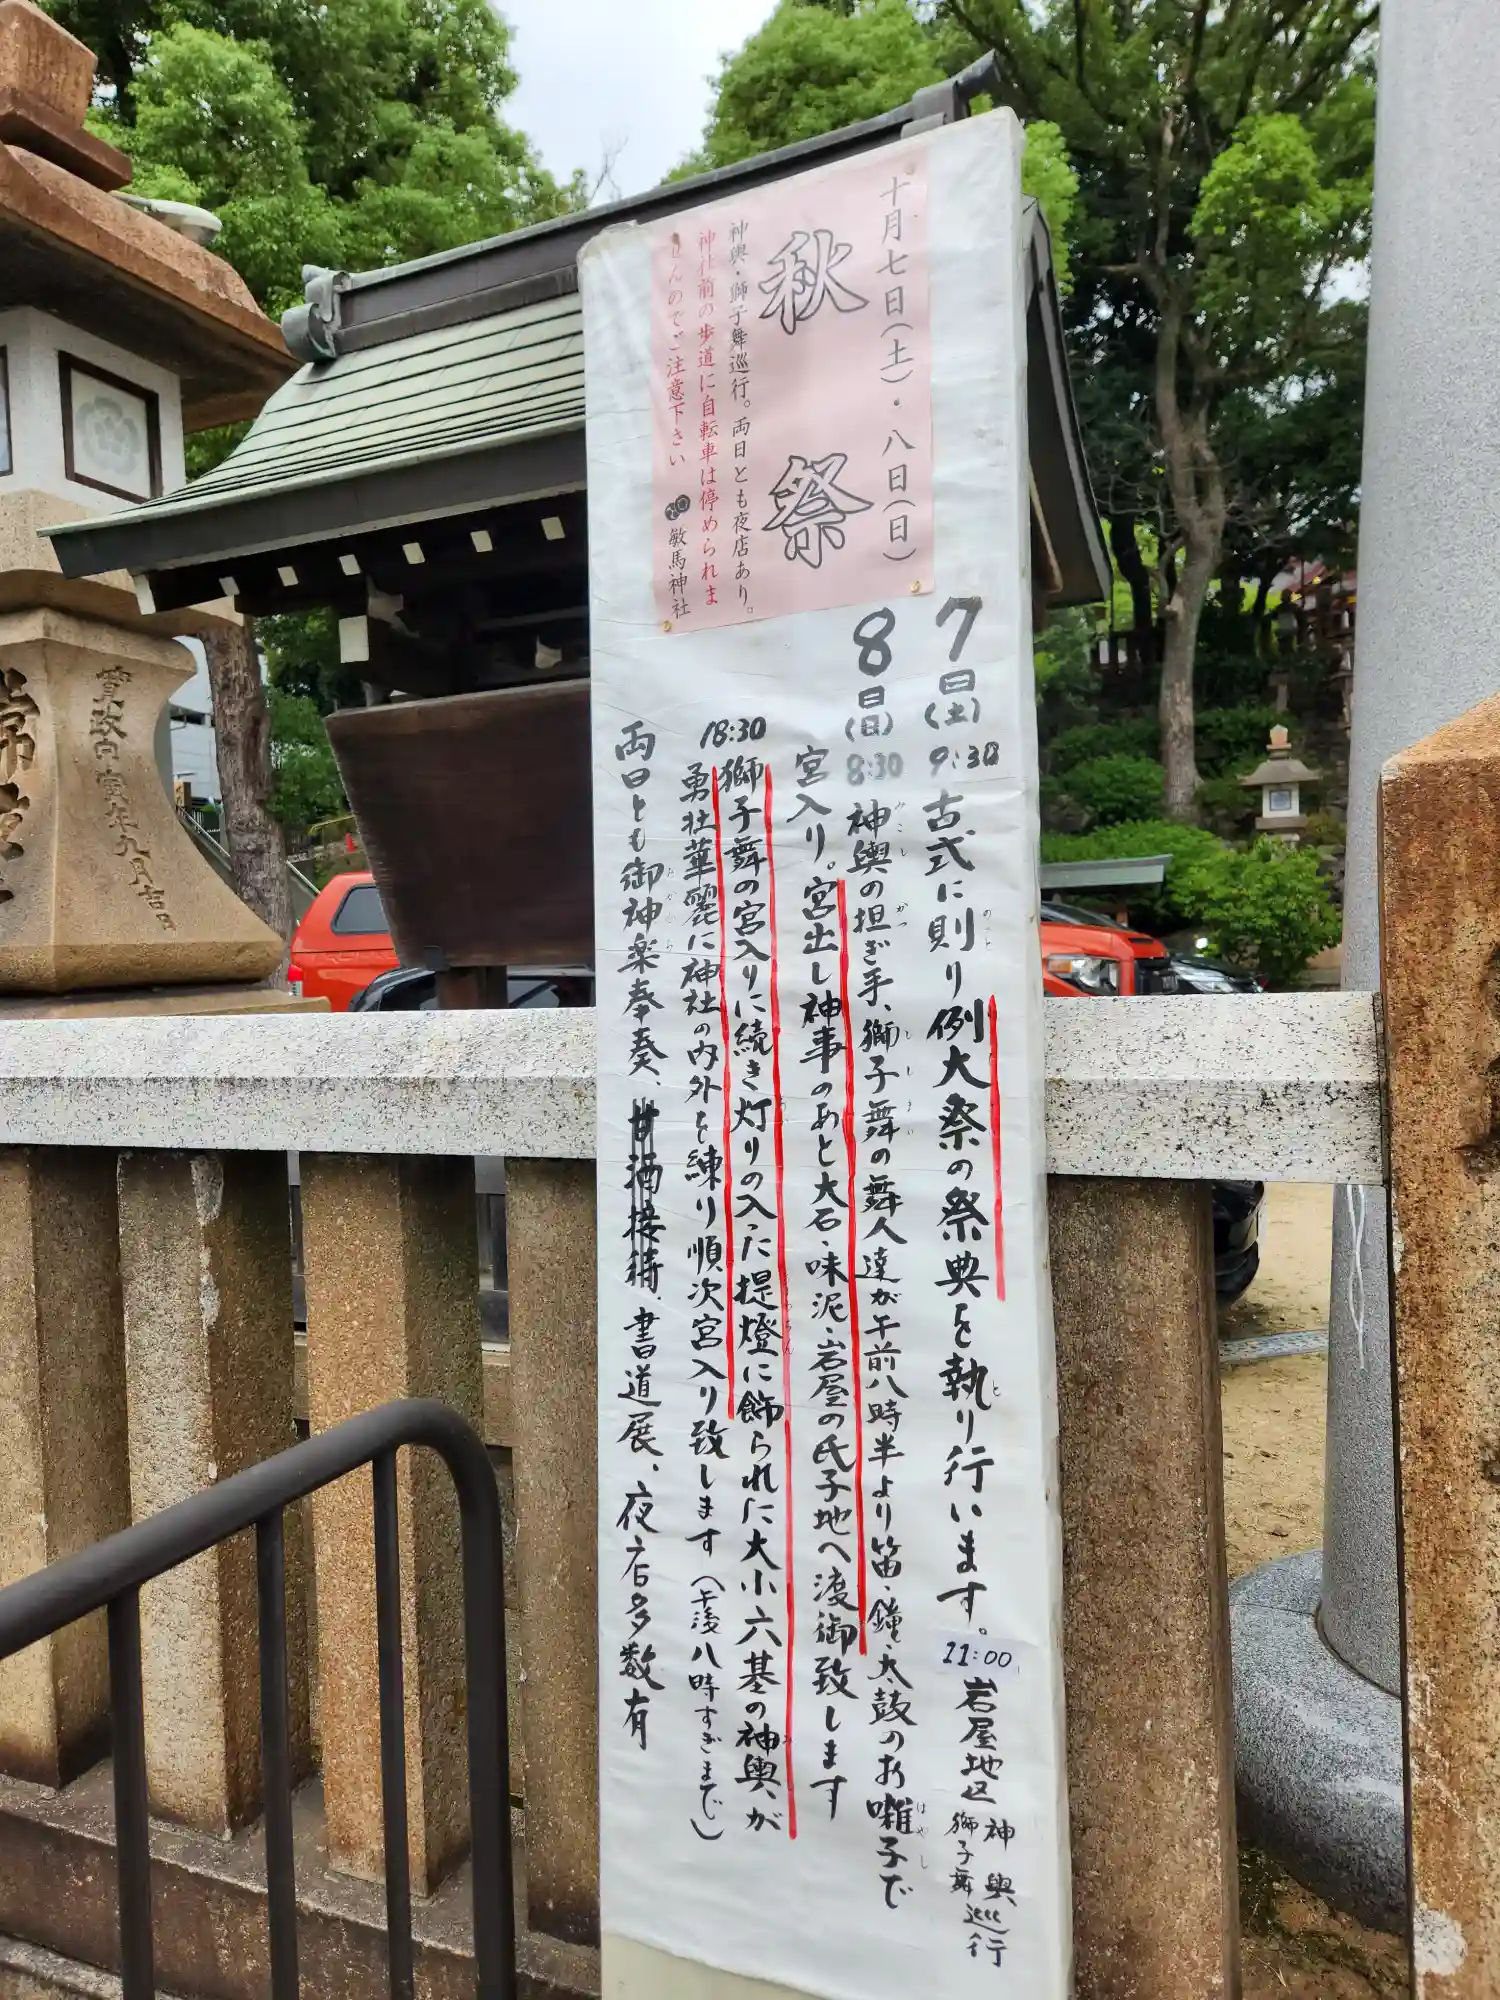 十月七日(土)・八日(日)
秋祭
神輿・獅子舞巡行。両日とも夜店あり。
神社前の歩道に自転車は停められま
せんのでご注意下さい
敏馬神社
7日(土) 9:30 古式に則り例大祭の祭典を執り行います。
11:00 岩屋地区 神輿獅子舞巡行
8日(日) 8:30 神輿の担ぎ手、獅子舞の舞人達が午前八時半より笛・鐘・太鼓のお囃子で
宮入り。宮出し神事のあと大石・味泥・岩屋の氏子地へ渡御致します
18:30 獅子舞の宮入りに続き灯りの入った提燈に飾られた大小六基の神輿が
勇壮華麗に神社の内外を練り順次宮入り致します(午後八時すぎまで)
両日とも御神楽奉奏、甘酒接待、書道展、夜店多数有
寛政六甲寅年九月吉日
常